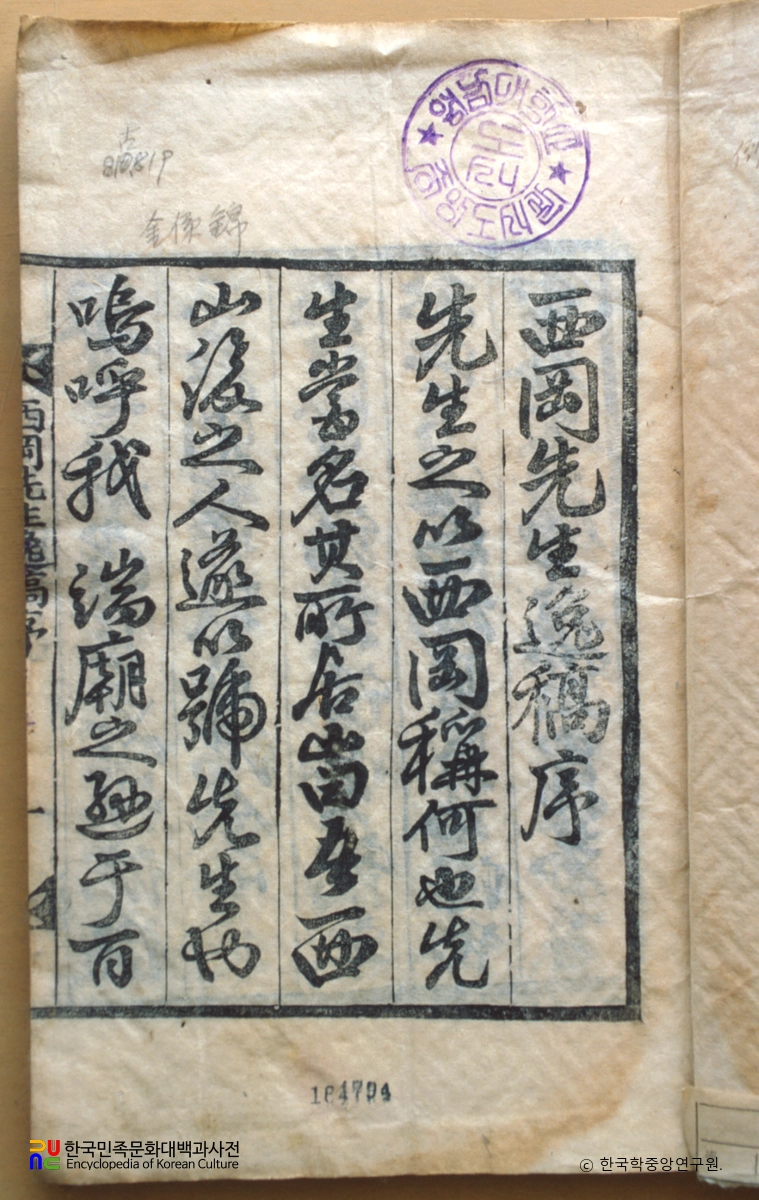 영남대학교
중앙도서관
도서
金係錦
西岡先生逸稿序
先生之以西岡稱何也先
生嘗名其所居山曰吾西
山後之人遂以號先生也
嗚呼我 端廟之遜于百
西岡先生逸稿序
一
한국민족문화대백과사전
Encyclopedia of Korean Culture
© 한국학중앙연구원.